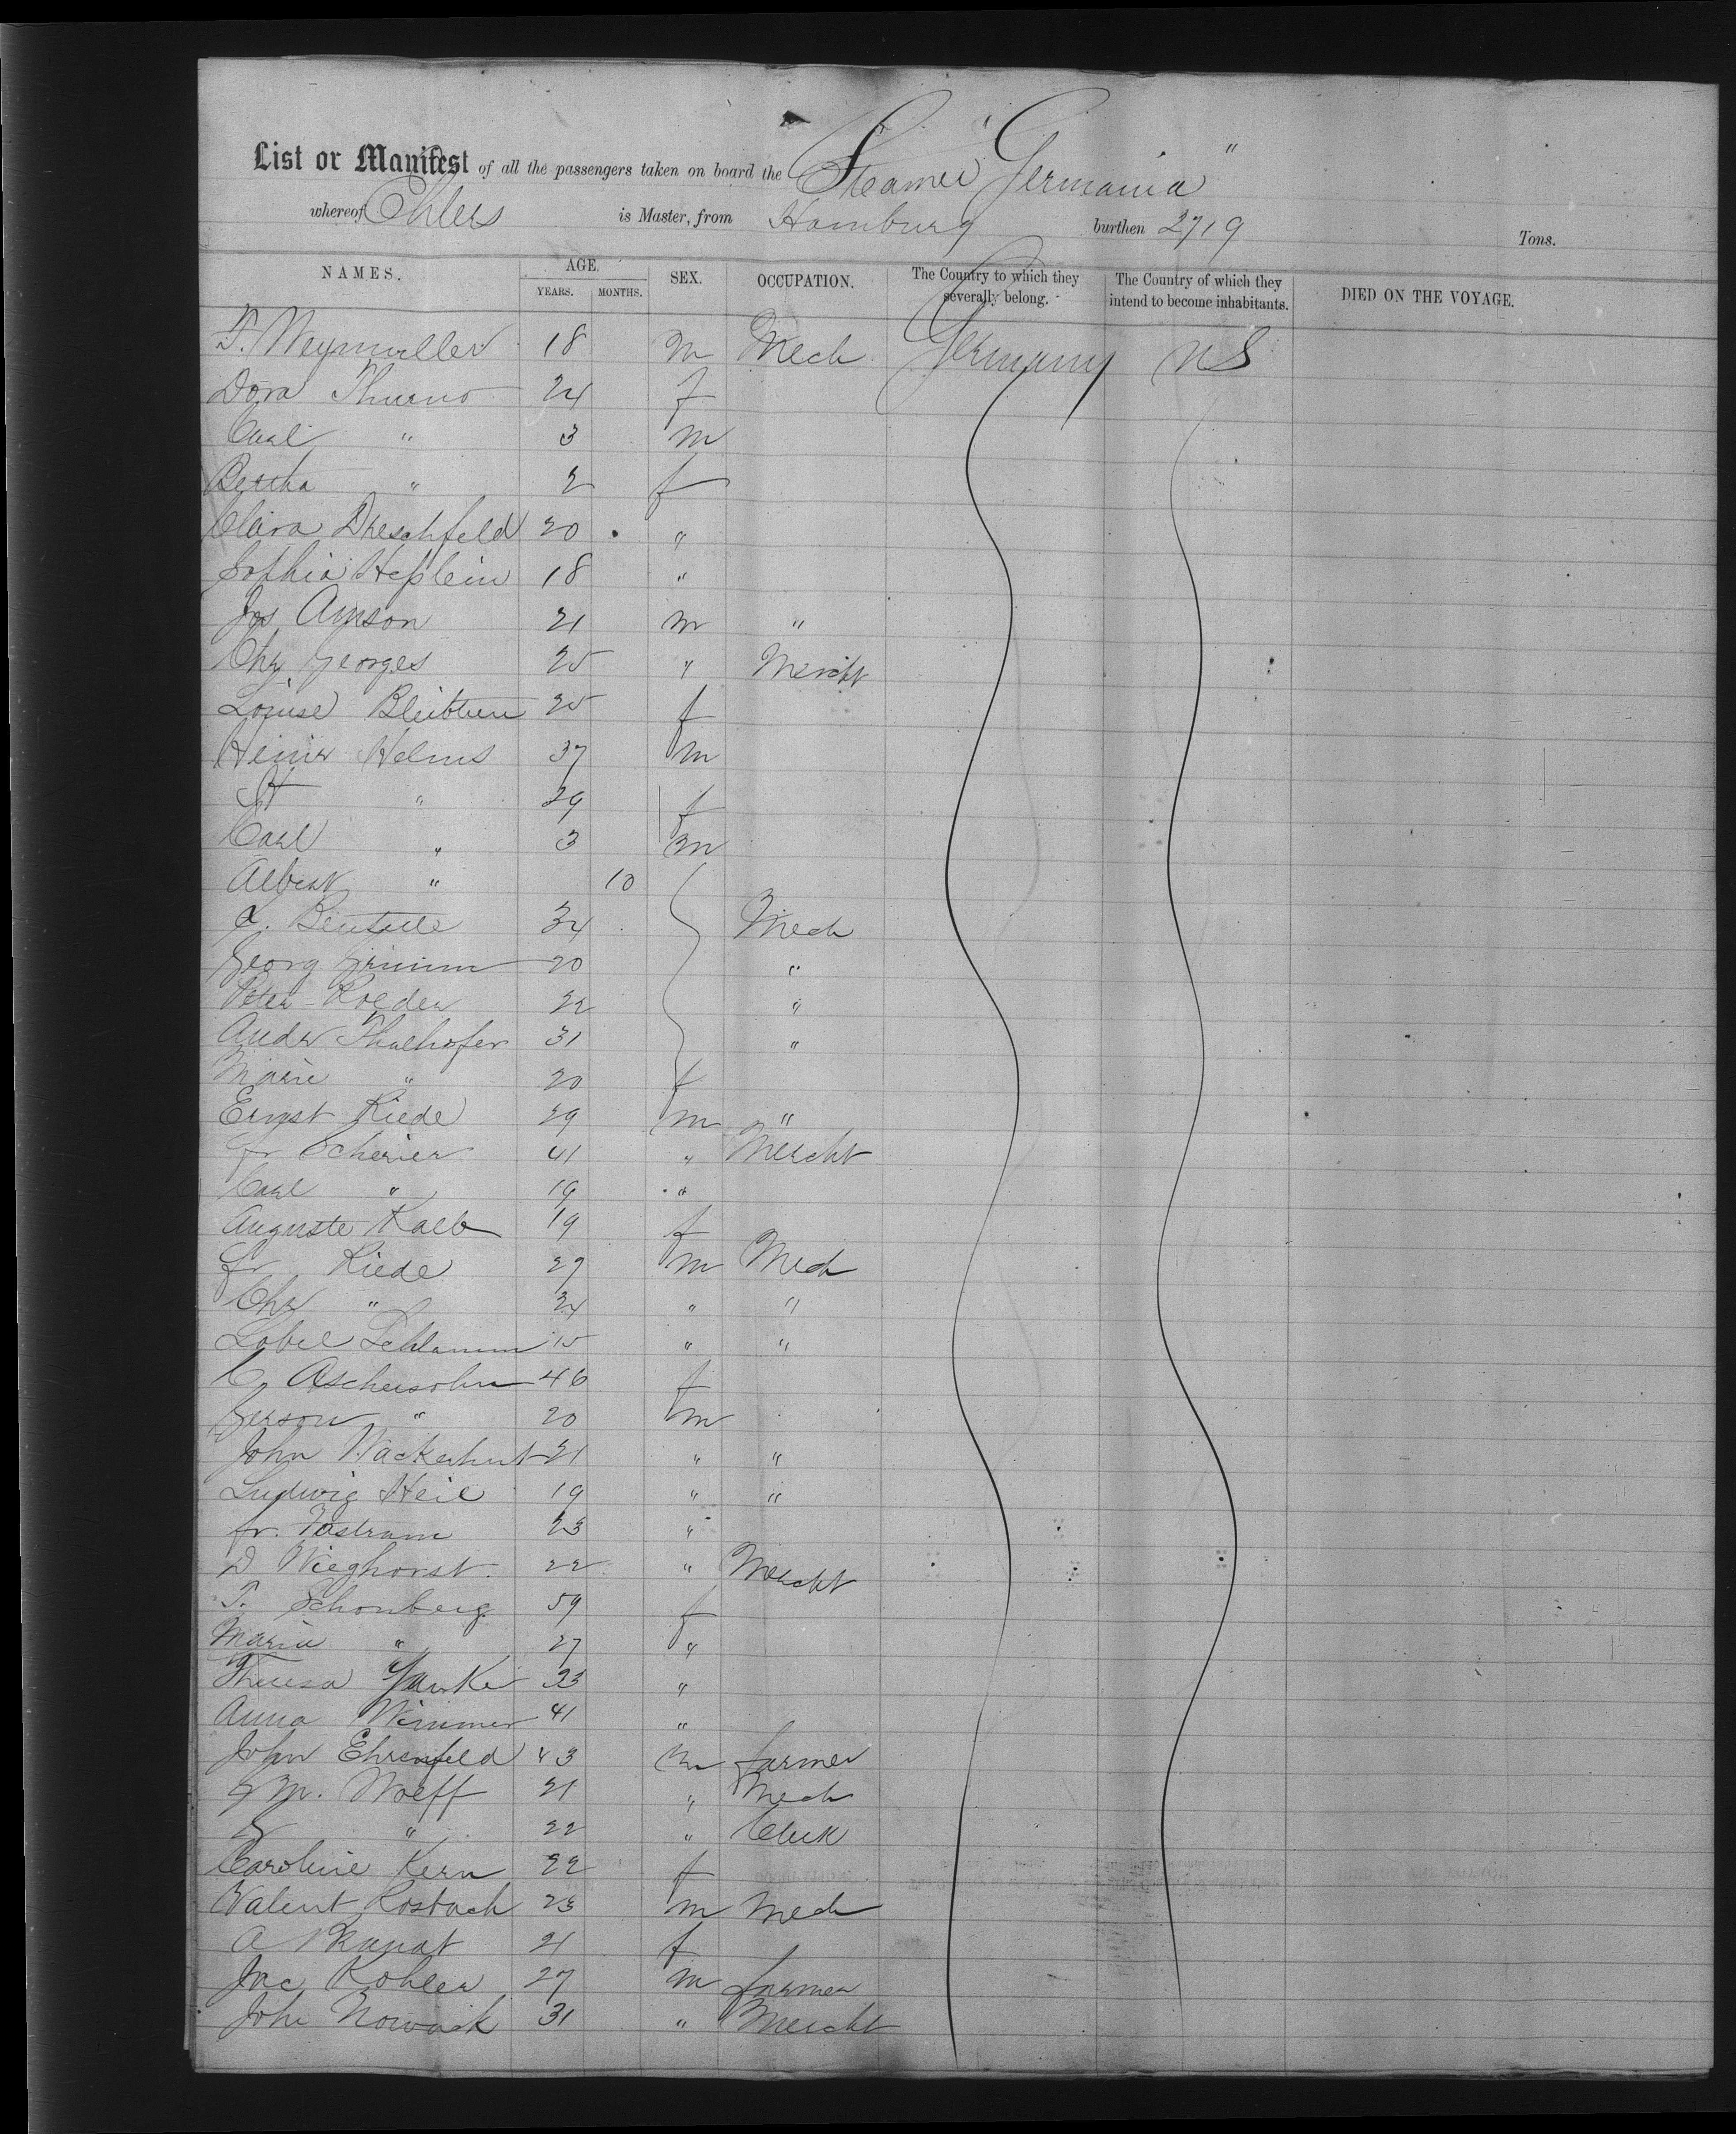 List or Manifest of all the passengers taken on board the Steamer "Germania"
whereof Ehlers is Master, from Hamburg burthen 2719 Tons.
NAMES. AGE. SEX. OCCUPATION. The Country to which they severally belong. The Country of which they intend to become inhabitants. DIED ON THE VOYAGE.
YEARS. MONTHS.
T. Weymuller 18 m Mech Germany US
Dora Thurno 24 f
Carl " 3 m
Bertha " 2 f
Clara Dreschfeld 20 "
Sophia Hesslein 18 "
Jos Amson 21 m "
Chr Georges 25 " Mercht
Louise Bleibtreu 25 f
Heinr Helms 37 m
" 29 f
Carl " 3 m
Albert " 10
34 Mech
Georg Grimm 20 "
Peter Roeder 22 "
Andr Thalhofer 31 "
Marie " 20 f
Ernst Riede 29 m "
Fr Scherier 41 " Mercht
Carl " 19 "
Auguste Kalb 19 f
Fr Riede 27 m Mech
Chr " 24 " "
Lobel Schlamm 15 " "
C Aschersohn 46 f
Gerson " 20 m
John Wackerhut 21 " "
Ludwig Heil 19 " "
Fr. Tostram 23 "
D Wieghorst 22 " Mercht
T. Schonberg 59 f
Maria " 27 "
Theresa Janke 23 "
Anna Wimmer 41 "
John Ehrenfeld 43 m farmer
M. Wolff 21 " Mech
" 22 " Clerk
Caroline Kern 22 f
Valent Rosbach 23 m Mech
A 21 f
Jac Kohler 27 m farmer
Joh Nowack 31 " Mercht